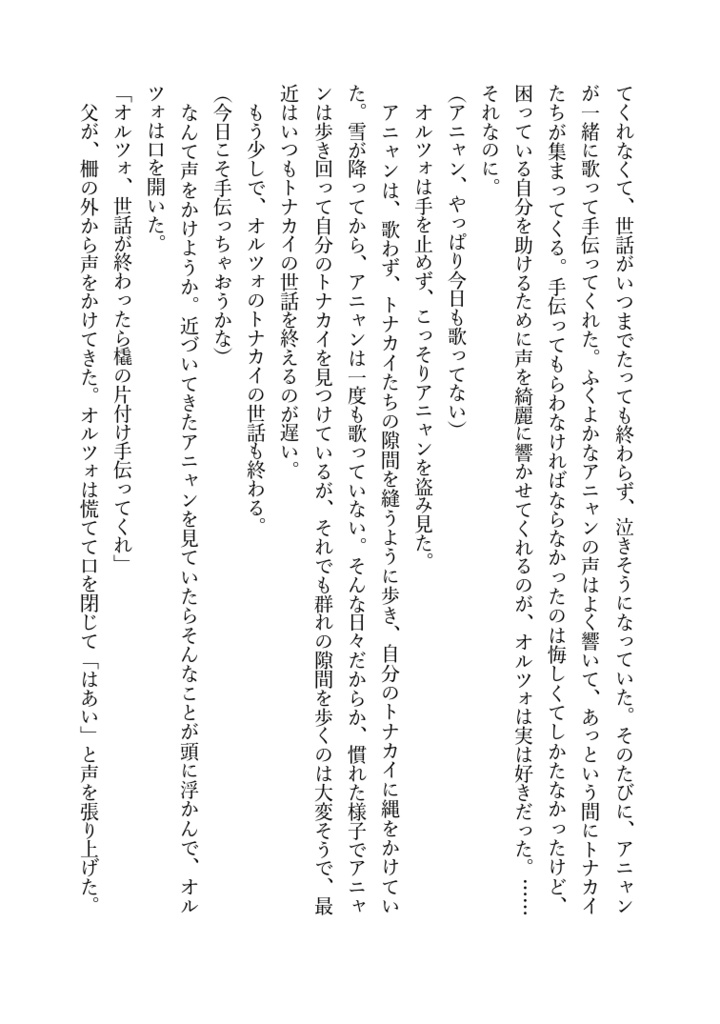 てくれなくて、世話がいつまでたっても終わらず、泣きそうになっていた。そのたびに、アニャン
が一緒に歌って手伝ってくれた。ふくよかなアニャンの声はよく響いて、あっという間にトナカイ
たちが集まってくる。手伝ってもらわなければならなかったのは悔しくてしかたなかったけど、
困っている自分を助けるために声を綺麗に響かせてくれるのが、オルツォは実は好きだった。……
それなのに。
(アニャン、やっぱり今日も歌ってない)
オルツォは手を止めず、こっそりアニャンを盗み見た。
アニャンは、歌わず、トナカイたちの隙間を縫うように歩き、自分のトナカイに縄をかけてい
た。雪が降ってから、アニャンは一度も歌っていない。そんな日々だからか、慣れた様子でアニャ
ンは歩き回って自分のトナカイを見つけているが、それでも群れの隙間を歩くのは大変そうで、最
近はいつもトナカイの世話を終えるのが遅い。
もう少しで、オルツォのトナカイの世話も終わる。
(今日こそ手伝っちゃおうかな)
なんて声をかけようか。近づいてきたアニャンを見ていたらそんなことが頭に浮かんで、オル
ツォは口を開いた。
「オルツォ、世話が終わったら橇の片付け手伝ってくれ」
父が、柵の外から声をかけてきた。オルツォは慌てて口を閉じて「はあい」と声を張り上げた。